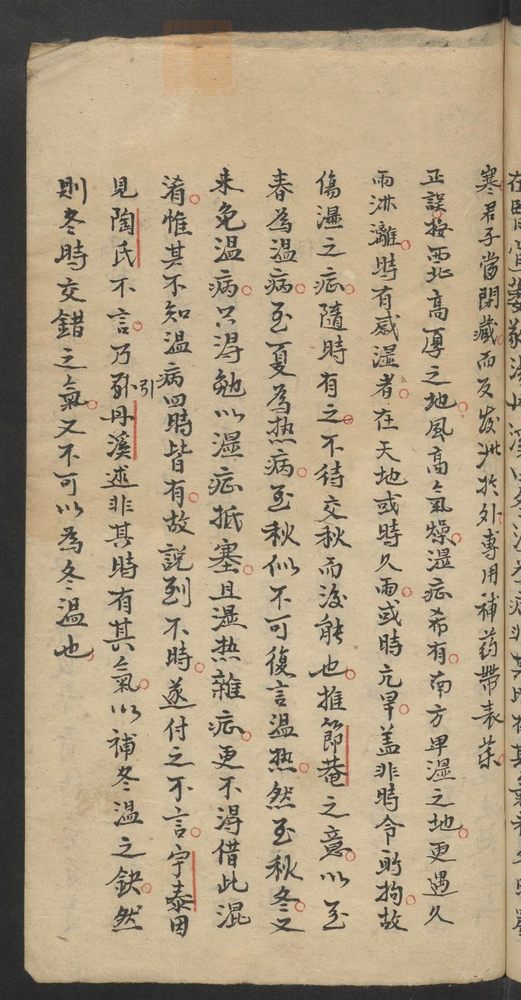 寒君子當閉藏而反發泄於外專用補藥帶表藥
正誤按西北高厚之地風高氣燥濕症希有南方卑濕之地更遇久
雨淋漓時有感濕者在天地或時久雨或時亢旱蓋非時令所拘故
傷濕之症隨時有之不待交秋而後能也推節菴之意以至
春為温病至夏為热病至秋似不可復言温热然至秋冬又
来免温病只得勉以濕症抵塞且濕热雜症更不得借此混
淆惟其不知温病四時皆有故説到不時遂付之不言宇泰因
見陶氏不言乃引丹溪述非其時有其氣以補冬温之缺然
則冬時交錯之氣又不可以為冬温也